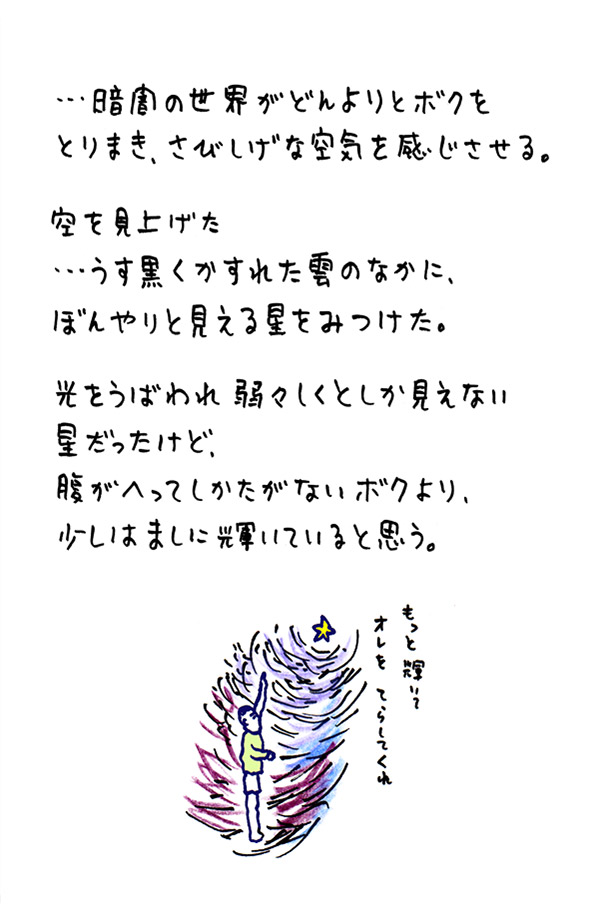 …暗闇の世界がどんよりとボクを
とりまき、さびしげな空気を感じさせる。
空を見上げた
…うす黒くかすれた雲のなかに、
ぼんやりと見える星をみつけた。
光をうばわれ 弱々しくとしか見えない
星だったけど、
腹がへってしかたがないボクより、
少しはましに輝いていると思う。
もっと輝いて
オレを てらしてくれ